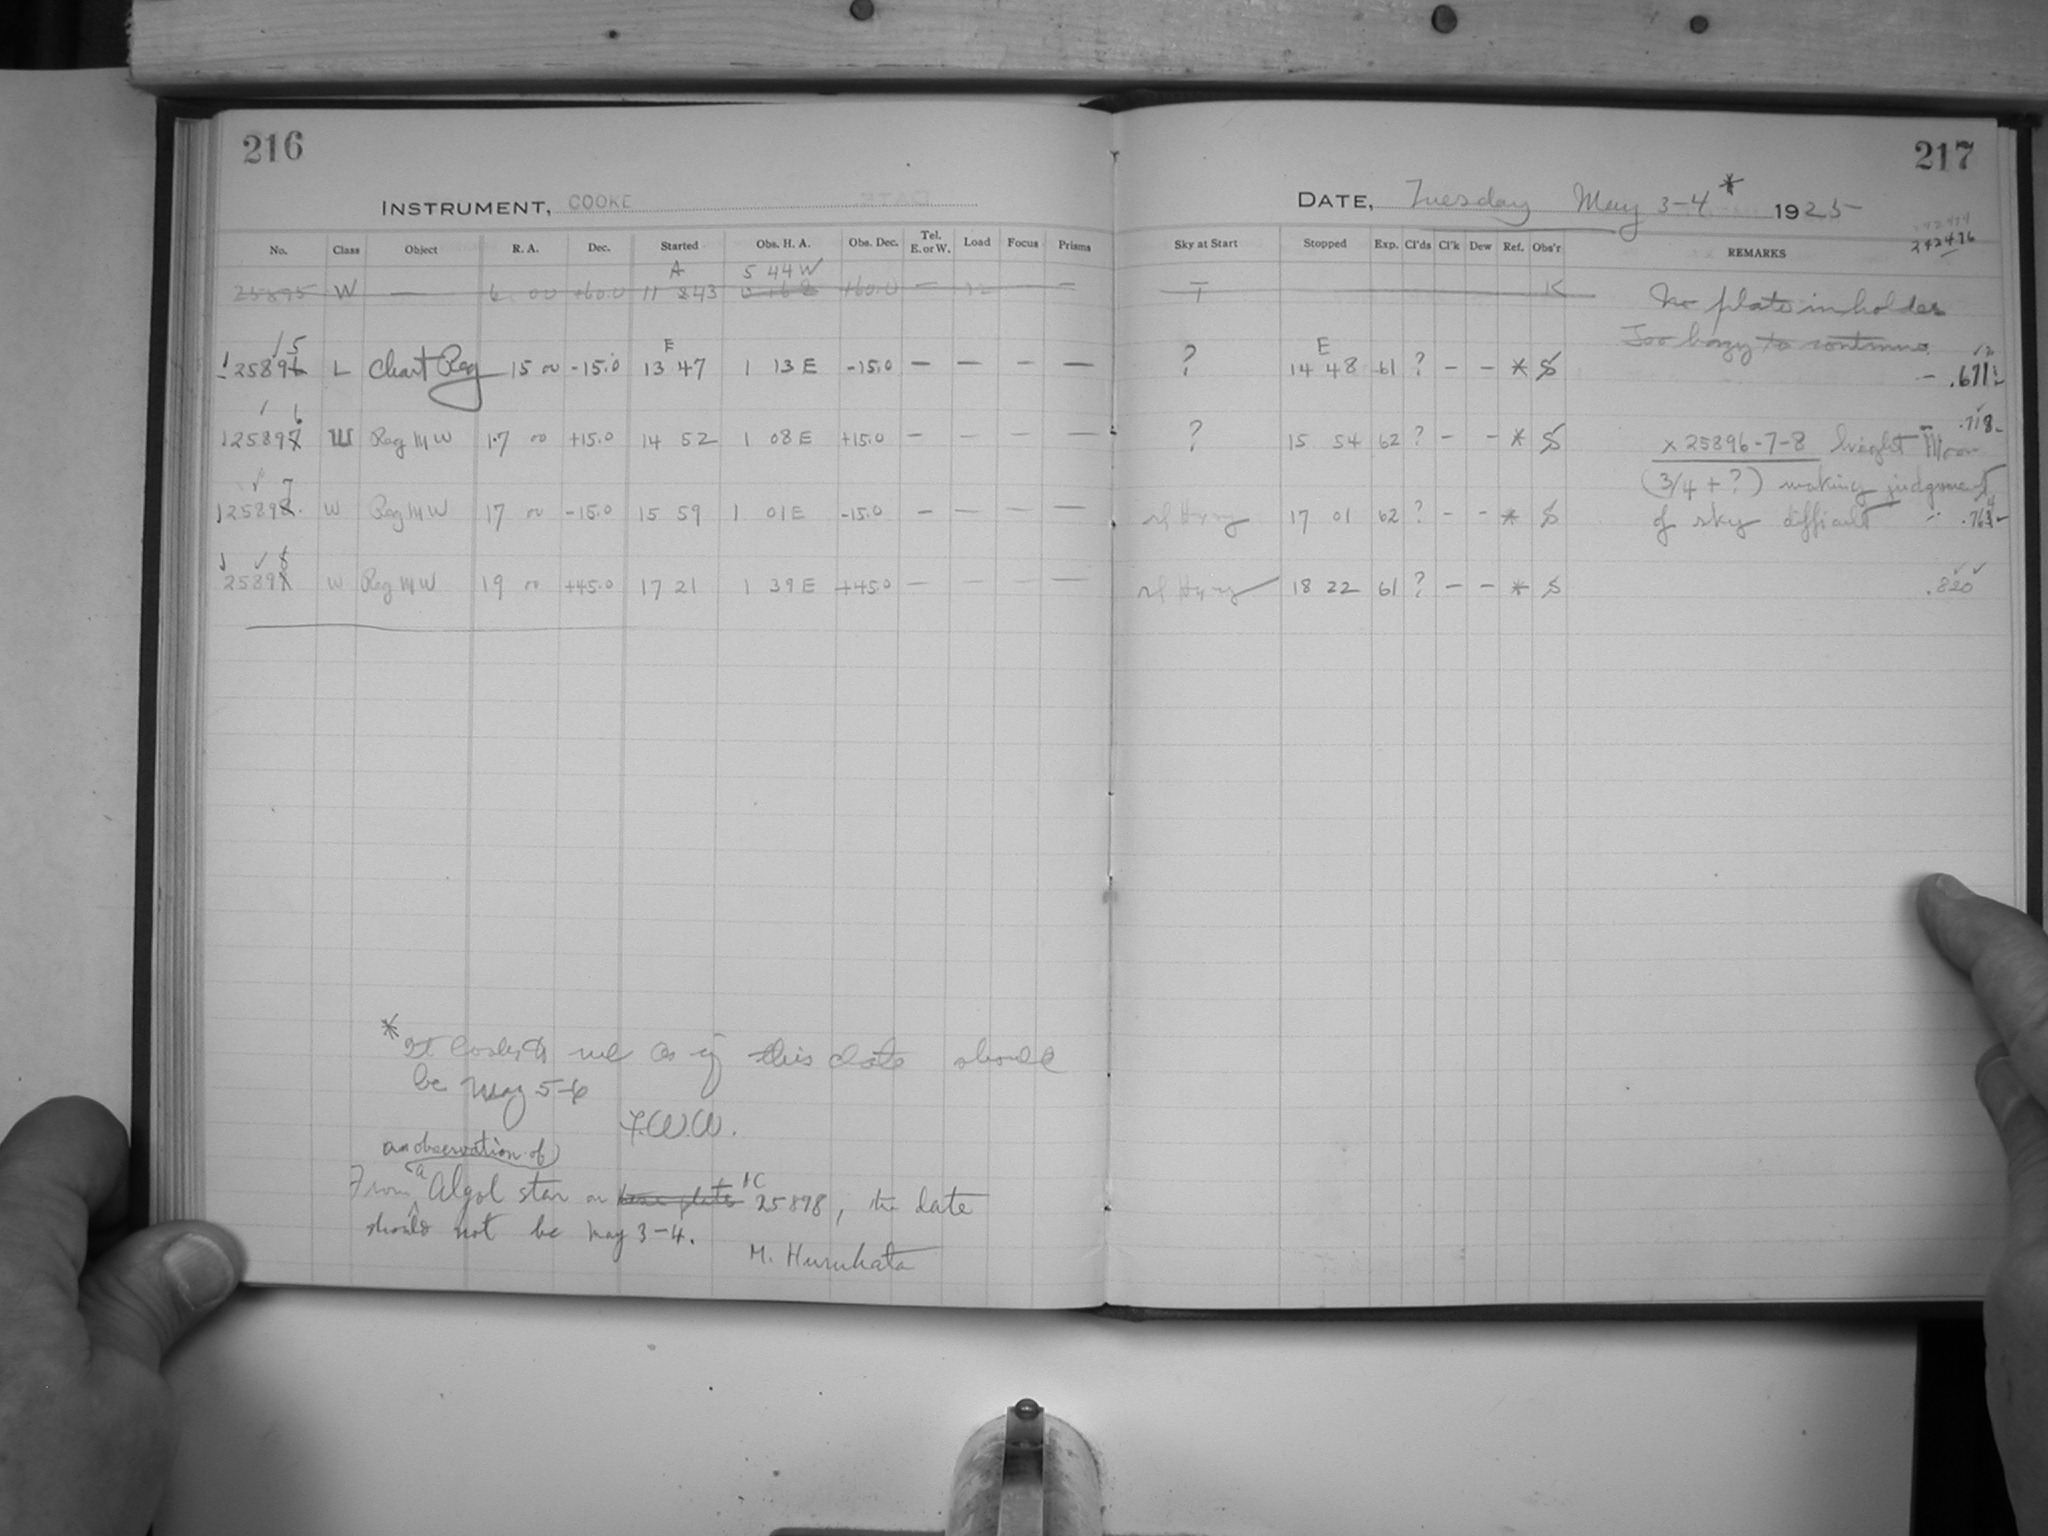 216
217
INSTRUMENT, COOKE
DATE, Tuesday May 3-4 * 1925
No. Class Object R. A. Dec. Started Obs. H. A. Obs. Dec. Tel. E. or W. Load Focus Prisms
Sky at Start Stopped Exp. Cl'ds Cl'k Dew Ref. Obs'r REMARKS
242476
A 5 44 W
25895 W — 6 00 +60.0 11 43 +60.0 — — T K
No plate in holder
Too hazy to continue
5 E E
25896 L Chart Reg 15 00 -15.0 13 47 1 13 E -15.0 — — — — ? 14 48 61 ? — — * S .671
6 .718
25897 W Reg MW 17 00 +15.0 14 52 1 08 E +15.0 — — — — ? 15 54 62 ? — — * S
x 25896-7-8 bright Moon
(3/4 + ?) making judgment
7
25898 W Reg MW 17 00 -15.0 15 59 1 01 E -15.0 — — — — sl Hazy 17 01 62 ? — — * S
of sky difficult
8
2589 W Reg MW 19 00 +45.0 17 21 1 39 E +45.0 — — — — sl Hazy 18 22 61 ? — — * S .820
* It looks to me as if this date should
be May 5-6
F.W.W.
an observation of
From a Algol star on IC 25898, the date
should not be May 3-4.
M. Huruhata